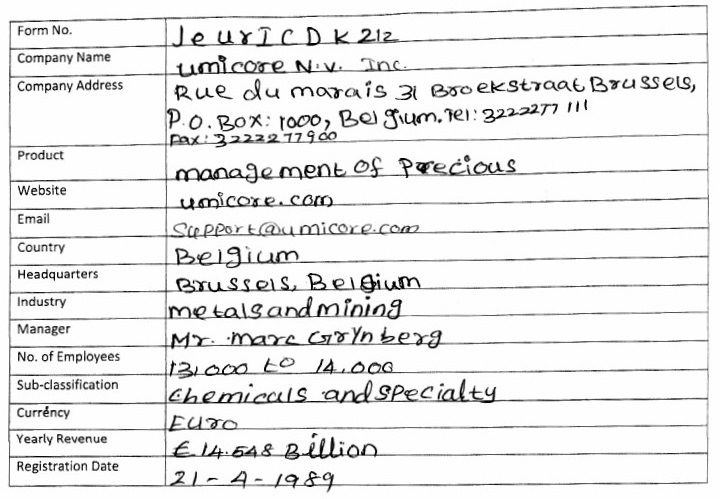 Form No. JeurICDK212
Company Name umicore N.v. Inc.
Company Address Rue du marais 31 Broekstraat Brussels,
P.O. Box: 1000, Belgium. Tel: 3222277 111
Fax: 3222277900
Product management of Precious
Website umicore.com
Email Support@umicore.com
Country Belgium
Headquarters Brussels, Belgium
Industry metals and mining
Manager Mr. marc Grynberg
No. of Employees 13,000 to 14,000
Sub-classification chemicals and specialty
Currency Euro
Yearly Revenue € 14.548 Billion
Registration Date 21-4-1989